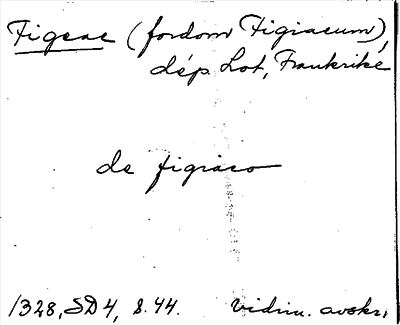 Figeac (fordom Figiacum),
dép. Lot, Frankrike
de figiaco
1328, SD4, s. 44. vidim. avskr.